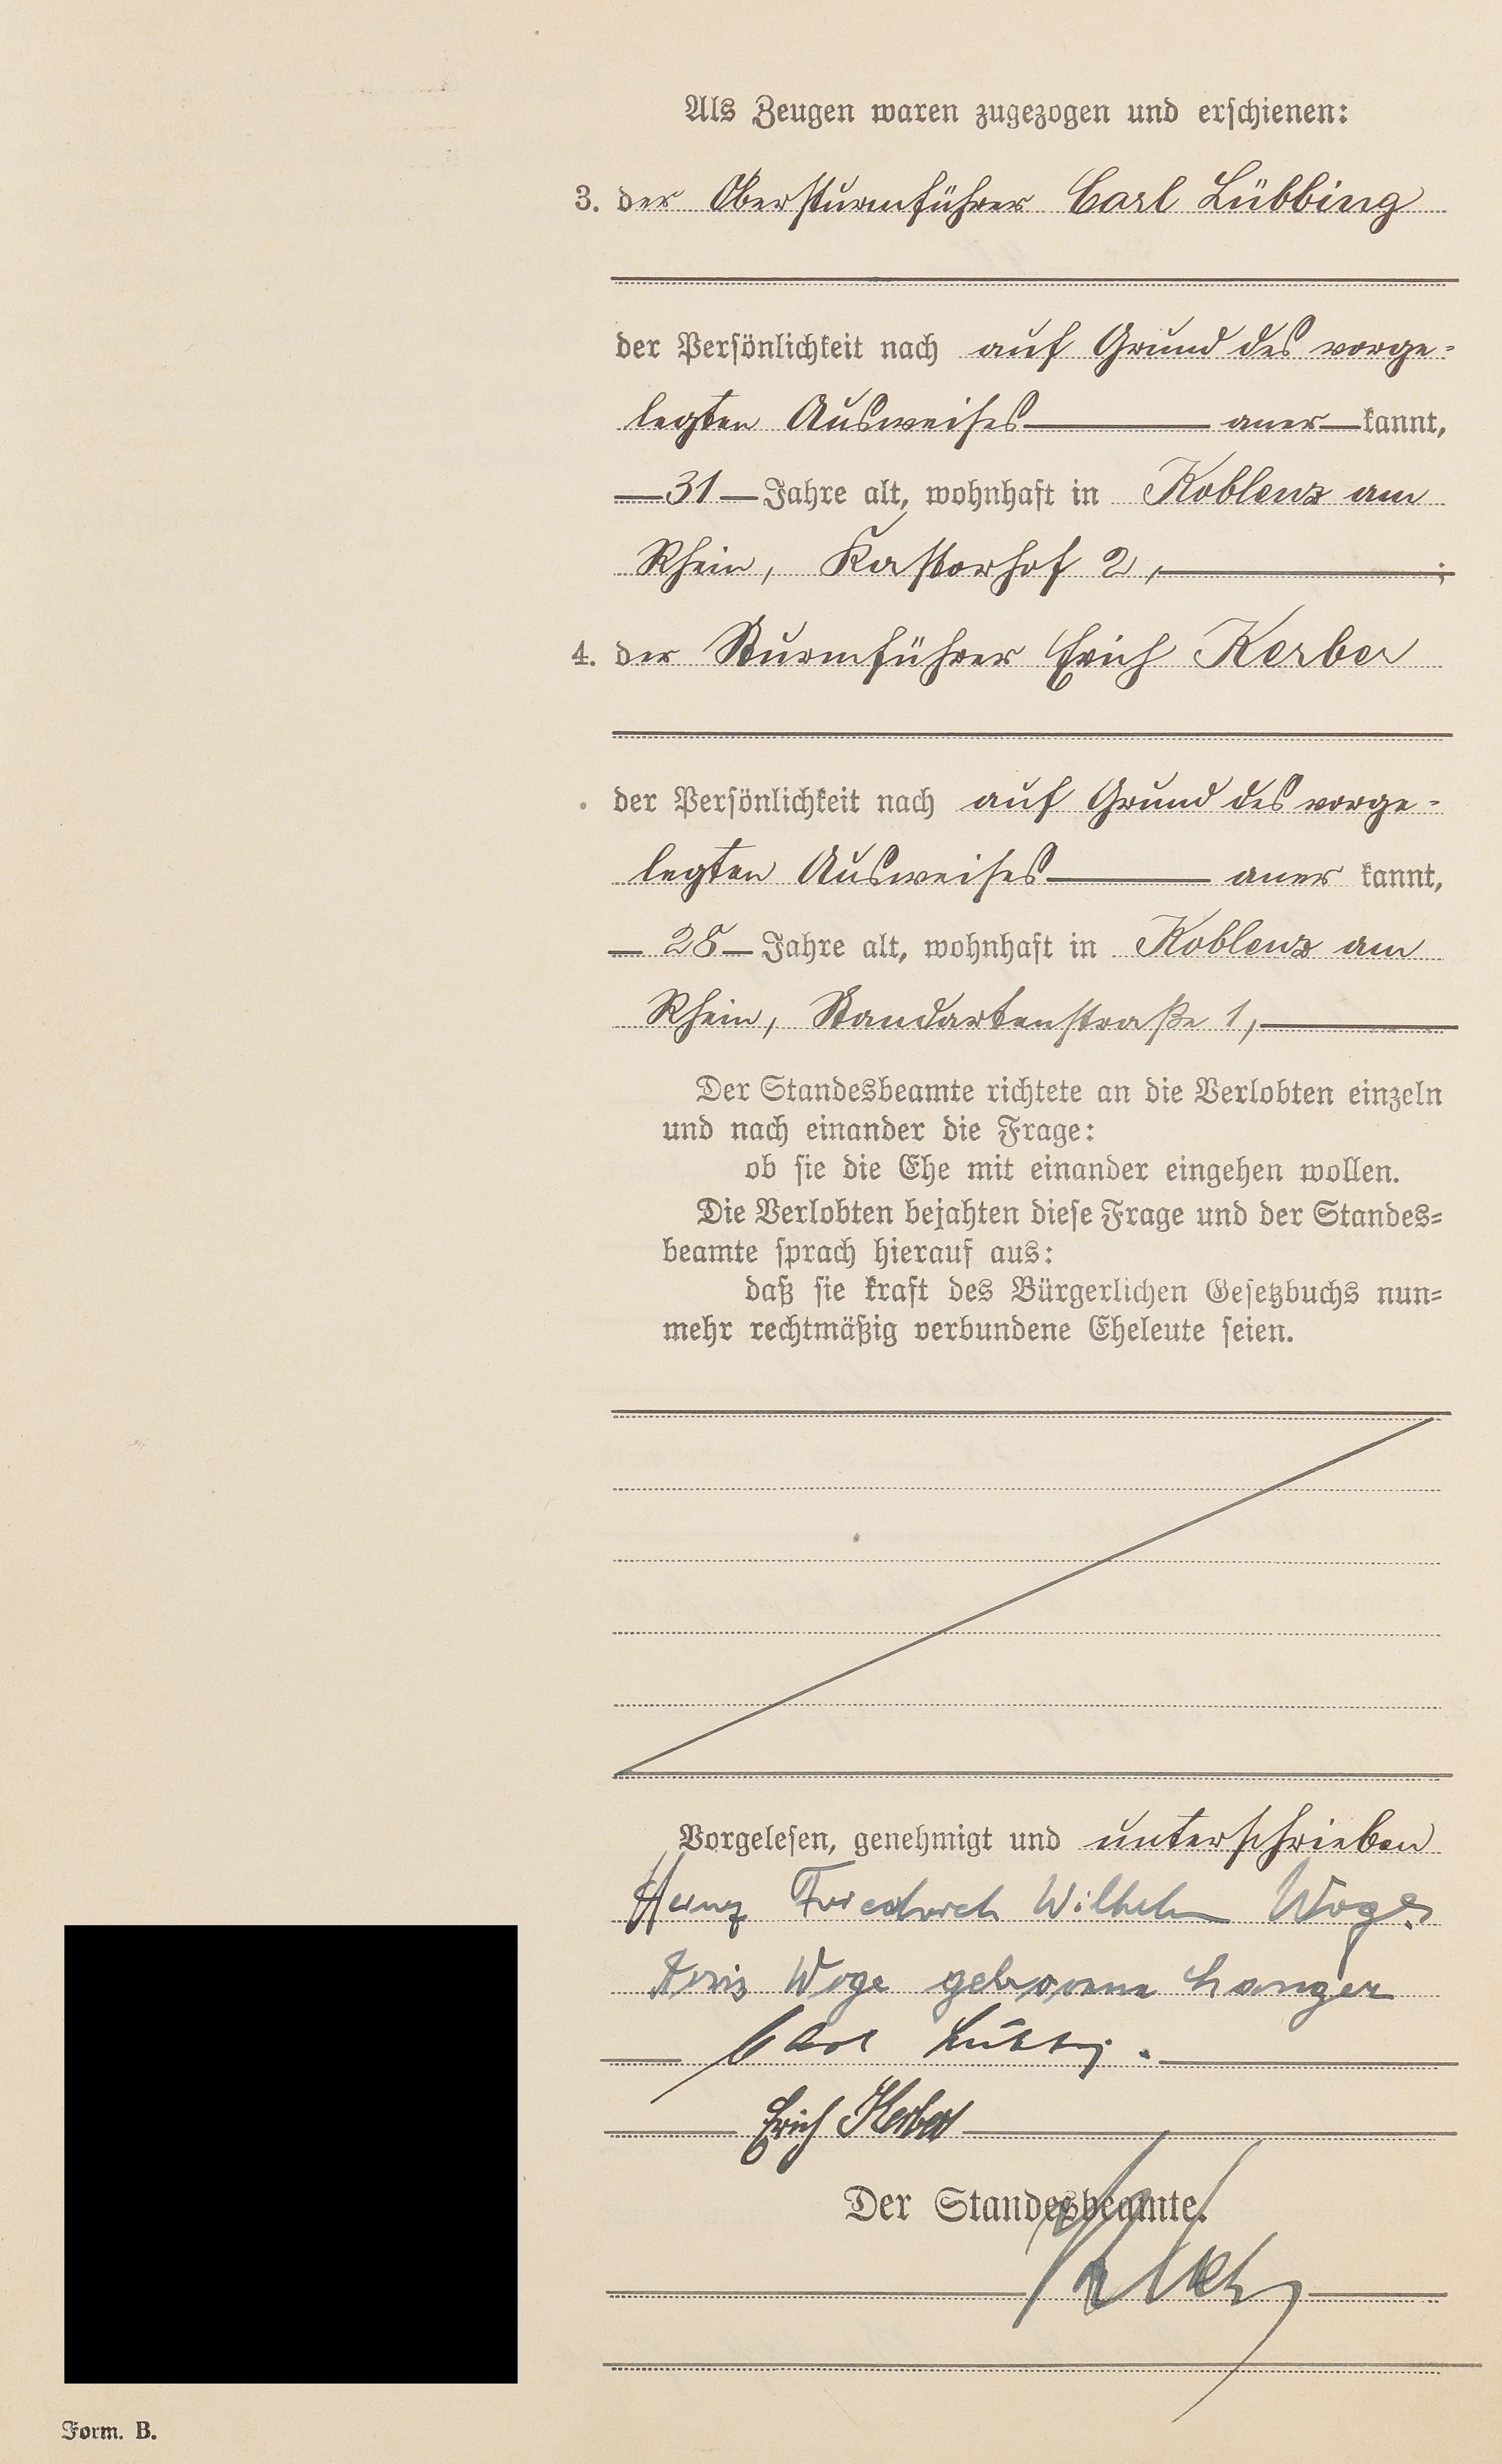 Als Zeugen waren zugezogen und erschienen:
3. der Obersturmführer Carl Lübbing
der Persönlichkeit nach auf Grund des vorge-
legten Ausweises aner kannt,
31 Jahre alt, wohnhaft in Koblenz am
Rhein, Kastorhof 2, ;
4. der Sturmführer Erich Kerber
der Persönlichkeit nach auf Grund des vorge-
legten Ausweises aner kannt,
28 Jahre alt, wohnhaft in Koblenz am
Rhein, Standartenstraße 1,
Der Standesbeamte richtete an die Verlobten einzeln
und nach einander die Frage:
ob sie die Ehe mit einander eingehen wollen.
Die Verlobten bejahten diese Frage und der Standes-
beamte sprach hierauf aus:
daß sie kraft des Bürgerlichen Gesetzbuchs nun-
mehr rechtmäßig verbundene Eheleute seien.
Vorgelesen, genehmigt und unterschrieben
Heinz Friedrich Wilhelm Woge
Woge geborene Langer
Carl Lübbing.
Erich Kerber
Der Standesbeamte.
Form. B.